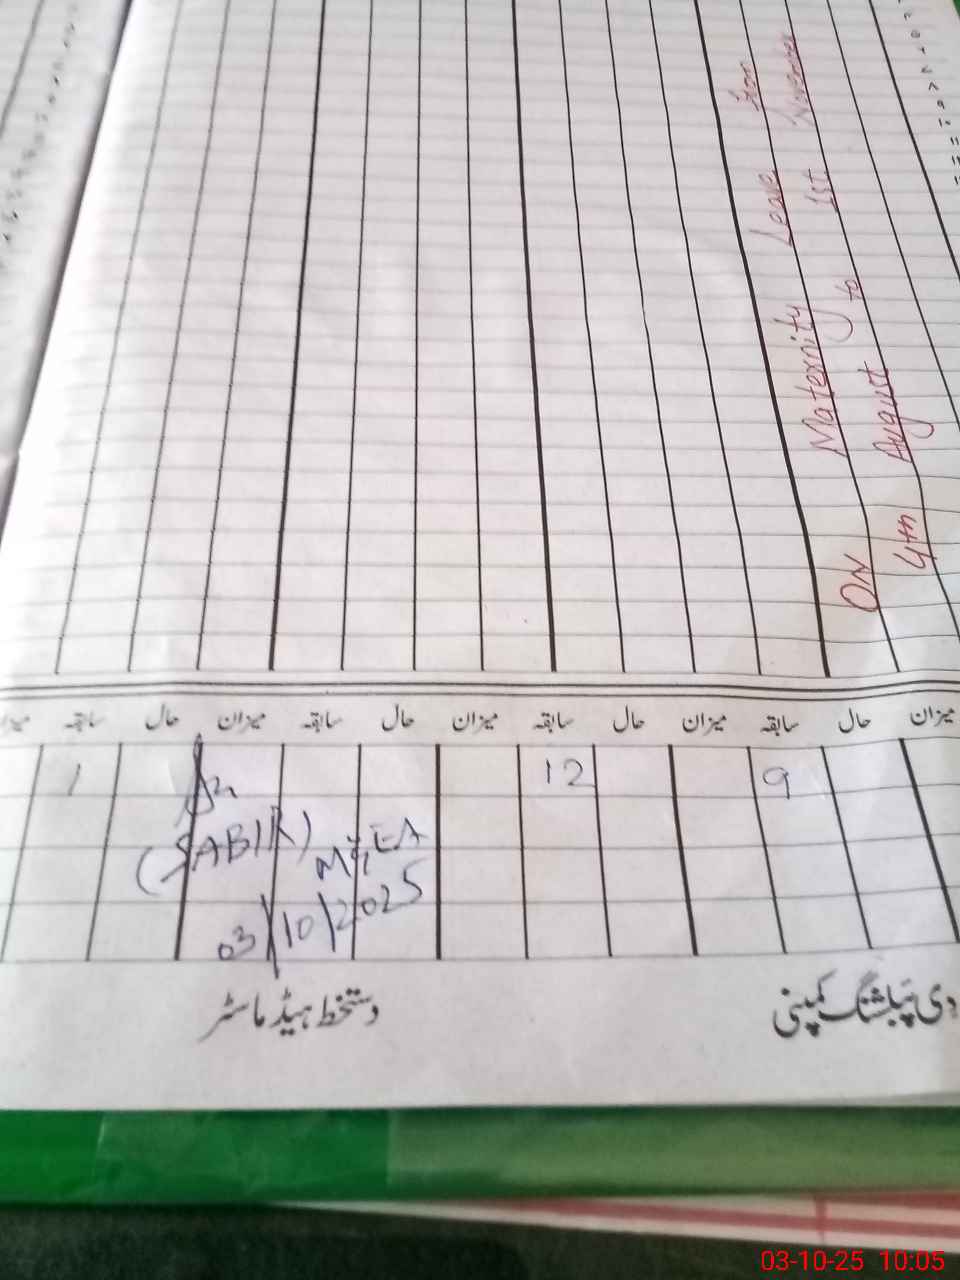 ON Maternity Leave from
4th August to 1st November
میزان حال سابقہ میزان حال سابقہ میزان حال سابقہ میزان حال سابقہ
1 12 9
(SABIR) M&EA
03/10/2025
دستخط ہیڈ ماسٹر
دی پبلشنگ کمپنی
03-10-25 10:05